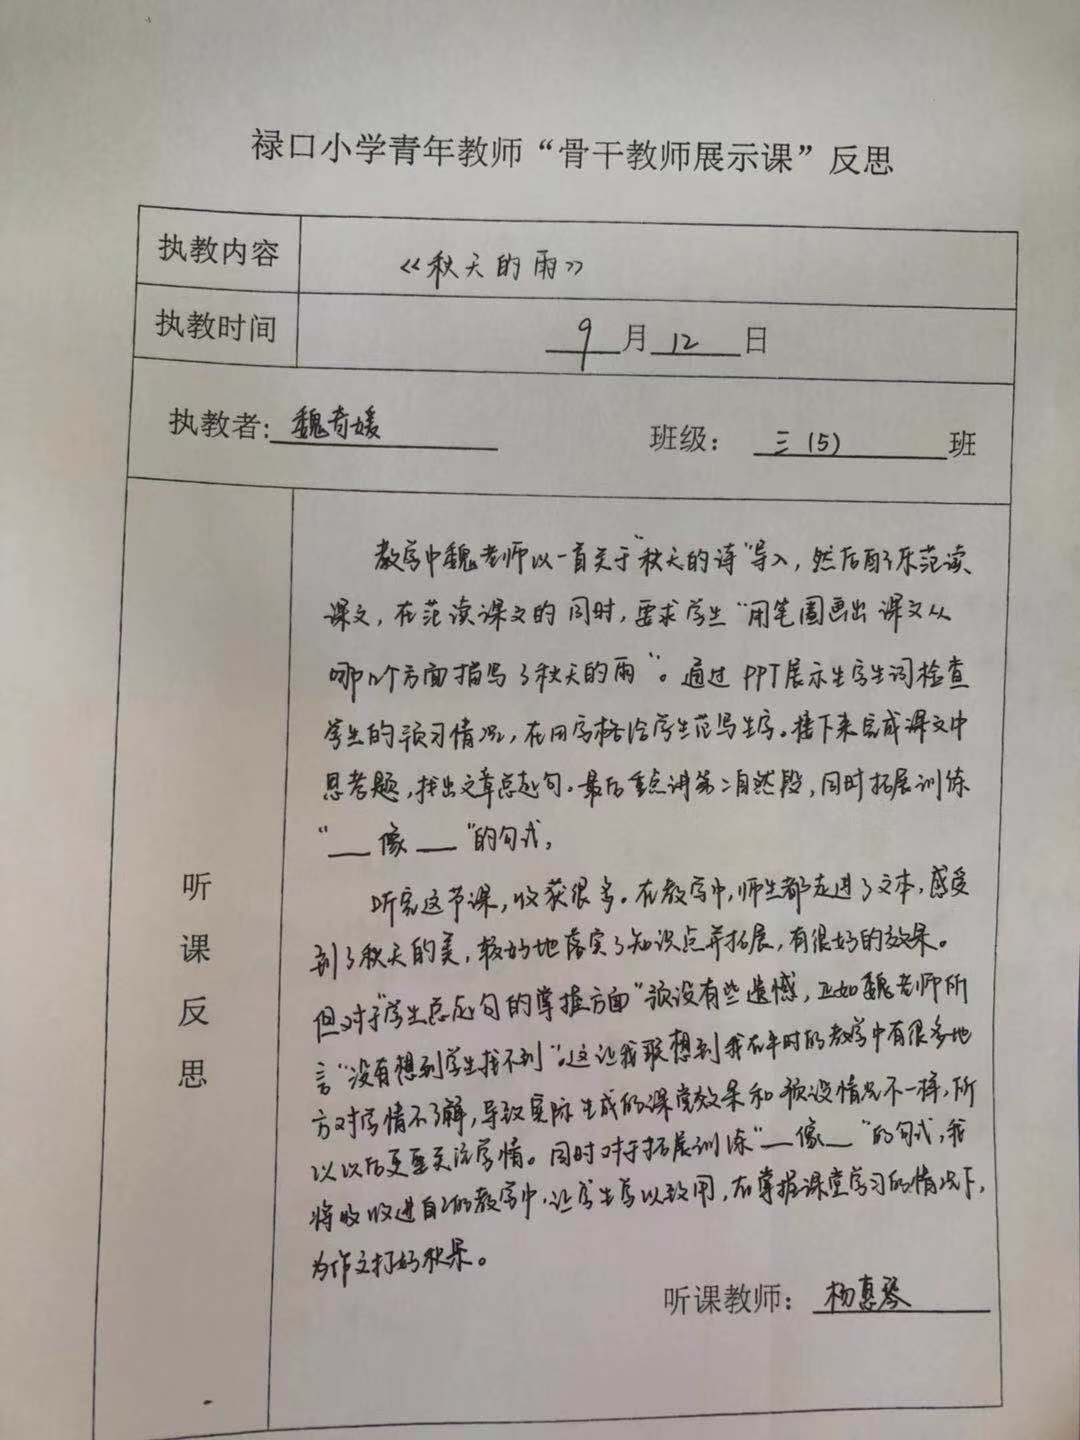 禄口小学青年教师“骨干教师展示课”反思
执教内容 《秋天的雨》
执教时间 9月12日
执教者: 魏奇媛 班级: 三(5) 班
听课反思
教学中魏老师以一首关于“秋天的诗”导入,然后配乐范读
课文,在范读课文的同时,要求学生“用笔圈画出课文从
哪几个方面描写了秋天的雨”。通过PPT展示生字生词检查
学生的预习情况,在田字格给学生范写生字。接下来完成课文中
思考题,找出文章总起句。最后重点讲第二自然段,同时拓展训练
“__像__”的句式,
听完这节课,收获很多。在教学中,师生都走进了文本,感受
到了秋天的美,较好地落实了知识点并拓展,有很好的效果。
但对于“学生总起句的掌握方面”预设有些遗憾,正如魏老师所
言“没有想到学生找不到”。这让我联想到我在平时的教学中有很多地
方对学情不了解,导致实际生成的课堂效果和预设情况不一样,所
以以后更要关注学情。同时对于拓展训练“__像__”的句式,我
将吸收进自己的教学中,让学生学以致用,在掌握课堂学习的情况下,
为作文打好
听课教师: 杨惠琴